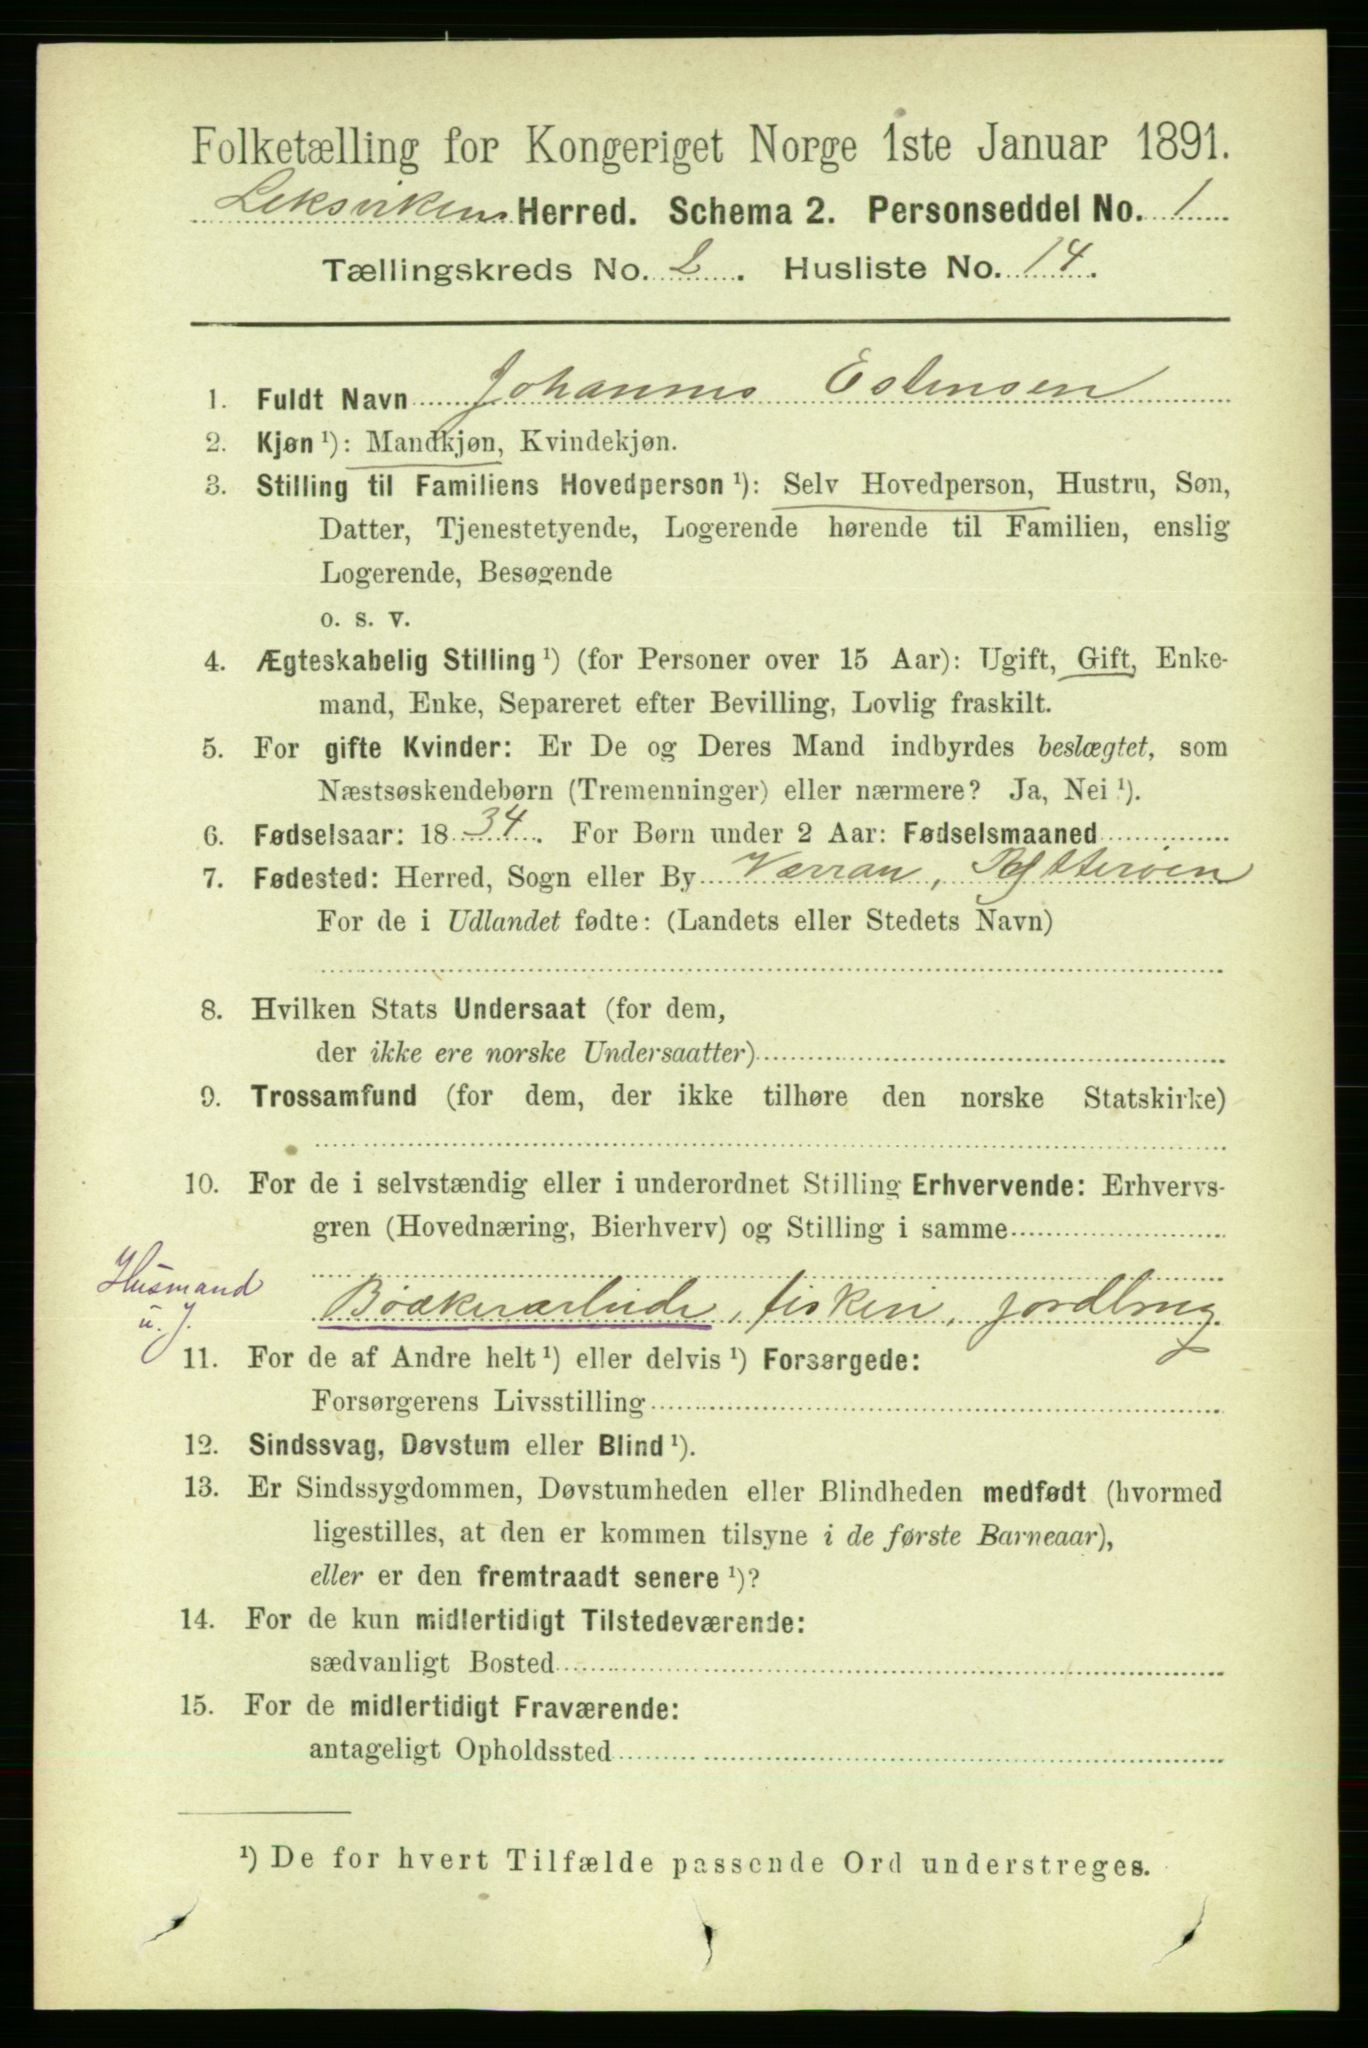 Folketælling for Kongeriget Norge 1ste Januar 1891.
Leksviken Herred. Schema 2. Personseddel No. 1
Tællingskreds No. 2. Husliste No. 14.
1. Fuldt Navn Johannes Estensen
2. Kjøn ¹): Mandkjøn, Kvindekjøn.
3. Stilling til Familiens Hovedperson ¹): Selv Hovedperson, Hustru, Søn,
Datter, Tjenestetyende, Logerende hørende til Familien, enslig
Logerende, Besøgende
o. s. v.
4. Ægteskabelig Stilling ¹) (for Personer over 15 Aar): Ugift, Gift, Enke-
mand, Enke, Separeret efter Bevilling, Lovlig fraskilt.
5. For gifte Kvinder: Er De og Deres Mand indbyrdes beslægtet, som
Næstsøskendebørn (Tremenninger) eller nærmere? Ja, Nei ¹).
6. Fødselsaar: 1834. For Børn under 2 Aar: Fødselsmaaned
7. Fødested: Herred, Sogn eller By Værran, Ytterøen
For de i Udlandet fødte: (Landets eller Stedets Navn)
8. Hvilken Stats Undersaat (for dem,
der ikke ere norske Undersaatter)
9. Trossamfund (for dem, der ikke tilhøre den norske Statskirke)
10. For de i selvstændig eller i underordnet Stilling Erhvervende: Erhvervs-
gren (Hovednæring, Bierhverv) og Stilling i samme
Husmand
Bödkerarbeide, fiskeri, jordbrug
u. J.
11. For de af Andre helt ¹) eller delvis ¹) Forsørgede:
Forsørgerens Livsstilling
12. Sindssvag, Døvstum eller Blind ¹).
13. Er Sindssygdommen, Døvstumheden eller Blindheden medfødt (hvormed
ligestilles, at den er kommen tilsyne i de første Barneaar),
eller er den fremtraadt senere ¹)?
14. For de kun midlertidigt Tilstedeværende:
sædvanligt Bosted
15. For de midlertidigt Fraværende:
antageligt Opholdssted
¹) De for hvert Tilfælde passende Ord understreges.